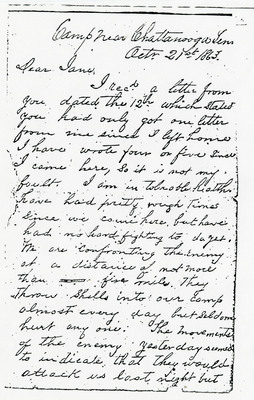 Camp near Chattanooga Tenn
Octr 21st 1863.
Dear Jane,
I recd a letter from
you dated the 12th which states
you had only got one letter
from me since I left home
I have wrote four or five since
I came here, So it is not my
fault. I am in tolrable health
have had pretty rough times
since we came here, but have
had no hard fighting to do yet.
We are confronting the enemy
at a distance of not more
than five mile, They
throw Shells into our camp
almost every day but seldom
hurt any one. The movements
of the enemy yesterday seemed
to inidicate that they would
attack us last night but